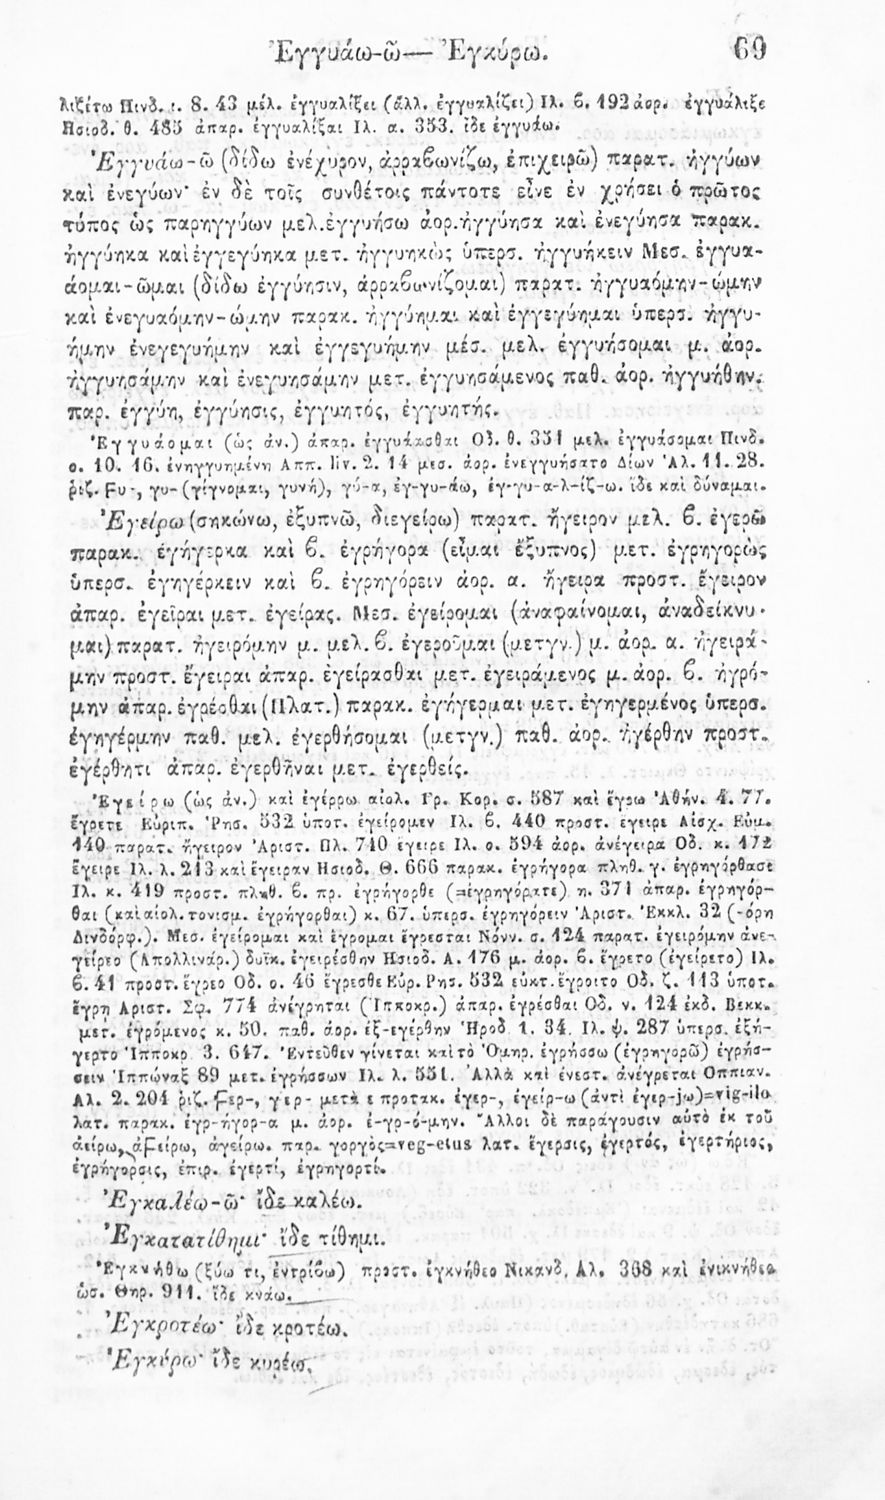 Ἐγγυάω-ῶ— Ἐγκύρω. 69
λιξέτω Πινδ. ι. 8. 43 μέλ. ἐγγυαλίξει (ἄλλ. ἐγγυαλίζει) Ιλ. β. 192 ἀορ. ἐγγυάλιξε
Ησιοδ. θ. 485 ἀπαρ. ἐγγυαλίξαι Ιλ. α. 353. ἴδε ἐγγυάω.
Ἐγγυάω-ῶ (δίδω ἐνέχυρον, ἀρραβωνίζω, ἐπιχειρῶ) παρατ. ἠγγύων
καὶ ἐνεγύων· ἐν δὲ τοῖς συνθέτοις πάντοτε εἶνε ἐν χρήσει ὁ πρῶτος
τύπος ὡς παρηγγύων μελ. ἐγγυήσω ἀορ. ἠγγύησα καὶ ἐνεγύησα παρακ.
ἠγγύηκα καὶ ἐγγεγύηκα μετ. ἠγγυηκὼς ὑπερσ. ἠγγυήκειν Μεσ. ἐγγυα-
άομαι-ῶμαι (δίδω ἐγγύησιν, ἀρραβωνίζομαι) παρατ. ἠγγυαόμην-ώμην
καὶ ἐνεγυαόμην-ώμην παρακ. ἠγγύημαι καὶ ἐγγεγύημαι ὑπερσ. ἠγγυ-
ήμην ἐνεγεγυήμην καὶ ἐγγεγυήμην μέσ. μελ. ἐγγυήσομαι μ. ἀορ.
ἠγγυησάμην καὶ ἐνεγυησάμην μετ. ἐγγυησάμενος παθ. ἀορ. ἠγγυήθην.
παρ. ἐγγύη, ἐγγύησις, ἐγγυητός, ἐγγυητής.
Ἐγγυάομαι (ὡς ἀν.) ἀπαρ. ἐγγυάασθαι Οδ. θ. 351 μελ. ἐγγυάσομαι Πινδ.
ο. 10. 16. ἐνηγγυημένη Αππ. liv. 2. 14 μεσ. ἀορ. ἐνεγγυήσατο Δίων Ἀλ. 11. 28.
ῥιζ. Ϝυ-, γυ- (γίγνομαι, γυνή), γύ-α, ἐγ-γυ-άω, ἐγ-γυ-α-λ-ίζ-ω. ἴδε καὶ δύναμαι.
Ἐγείρω (σηκώνω, ἐξυπνῶ, διεγείρω) παρατ. ἤγειρον μελ. β. ἐγερῶ
παρακ. ἐγήγερκα καὶ β. ἐγρήγορα (εἶμαι ἔξυπνος) μετ. ἐγρηγορὼς
ὑπερσ. ἐγηγέρκειν καὶ β. ἐγρηγόρειν ἀορ. α. ἤγειρα προστ. ἔγειρον
ἀπαρ. ἐγεῖραι μετ. ἐγείρας. Μεσ. ἐγείρομαι (ἀναφαίνομαι, ἀναδείκνυ-
μαι) παρατ. ἠγειρόμην μ. μελ. β. ἐγεροῦμαι (μετγν.) μ. ἀορ. α. ἠγειρά-
μην προστ. ἔγειραι ἀπαρ. ἐγείρασθαι μετ. ἐγειράμενος μ. ἀορ. β. ἠγρό-
μην ἀπαρ. ἐγρέσθαι (Πλατ.) παρακ. ἐγήγερμαι μετ. ἐγηγερμένος ὑπερσ.
ἐγηγέρμην παθ. μελ. ἐγερθήσομαι (μετγν.) παθ. ἀορ. ἠγέρθην προστ.
ἐγέρθητι ἀπαρ. ἐγερθῆναι μετ. ἐγερθείς.
Ἐγείρω (ὡς ἀν.) καὶ ἐγέρρω αἰολ. Γρ. Κορ. σ. 587 καὶ ἔγρω Ἀθήν. 4. 77.
ἔγρετε Εὐριπ. Ῥησ. 532 ὑποτ. ἐγείρομεν Ιλ. β. 440 προστ. ἔγειρε Αἰσχ. Εὐμ.
140 παρατ. ἤγειρον Ἀριστ. Πλ. 740 ἔγειρε Ιλ. ο. 594 ἀορ. ἀνέγειρα Οδ. κ. 172
ἔγειρε Ιλ. λ. 213 καὶ ἔγειραν Ησιοδ. Θ. 666 παρακ. ἐγρήγορα πληθ. γ. ἐγρηγόρθασι
Ιλ. κ. 419 προστ. πληθ. β. πρ. ἐγρήγορθε (=ἐγρηγόρατε) η. 371 ἀπαρ. ἐγρηγόρ-
θαι (καὶ αἰολ. τονισμ. ἐγρήγορθαι) κ. 67. ὑπερσ. ἐγρηγόρειν Ἀριστ. Ἐκκλ. 32 (-όρη
Δινδόρφ.). Μεσ. ἐγείρομαι καὶ ἔγρομαι ἔγρεσται Νόνν. σ. 124 παρατ. ἐγειρόμην ἀνε-
γείρεο (Απολλινάρ.) δυϊκ. ἐγειρέσθην Ησιοδ. Α. 176 μ. ἀορ. β. ἔγρετο (ἐγείρετο) Ιλ.
β. 41 προστ. ἔγρεο Οδ. ο. 46 ἔγρεσθε Εὐρ. Ρησ. 532 εὐκτ. ἔγροιτο Οδ. ζ. 113 ὑποτ.
ἔγρη Αριστ. Σφ. 774 ἀνέγρηται (Ἱπποκρ.) ἀπαρ. ἐγρέσθαι Οδ. ν. 124 ἐκδ. Βεκκ.
μετ. ἐγρόμενος κ. 50. παθ. ἀορ. ἐξ-εγέρθην Ἡροδ 1. 34. Ιλ. ψ. 287 ὑπερσ. ἐξή-
γερτο Ἱπποκρ 3. 647. Ἐντεῦθεν γίνεται καὶ τὸ Ὁμηρ. ἐγρήσσω (ἐγρηγορῶ) ἐγρήσ-
σειν Ἱππώναξ 89 μετ. ἐγρήσσων Ιλ. λ. 551. Ἀλλὰ καὶ ἐνεστ. ἀνέγρεται Οππιαν.
Αλ. 2. 204 ῥιζ. Ϝερ-, γερ- μετὰ ε προτακ. ἐγερ-, ἐγείρ-ω (ἀντὶ ἐγερ-jω)=vig-ilo
λατ. παρακ. ἐγρ-ήγορ-α μ. ἀορ. ἐ-γρ-ό-μην. Ἄλλοι δὲ παράγουσιν αὐτὸ ἐκ τοῦ
ἀείρω, ἀϜείρω, ἀγείρω. παρ. γοργὸς=veg-etus λατ. ἔγερσις, ἐγερτός, ἐγερτήριος,
ἐγρήγορσις, ἐπιρ. ἐγερτί, ἐγρηγορτί.
Ἐγκαλέω-ῶ· ἴδε καλέω.
Ἐγκατατίθημι· ἴδε τίθημι.
Ἐγκνήθω (ξύω τι, ἐντρίβω) προστ. ἐγκνήθεο Νικανδ. Αλ. 368 καὶ ἐνικνήθεο
ὡσ. Θηρ. 911. ἴδε κνάω.
Ἐγκροτέω· ἴδε κροτέω.
Ἐγκύρω· ἴδε κυρέω.